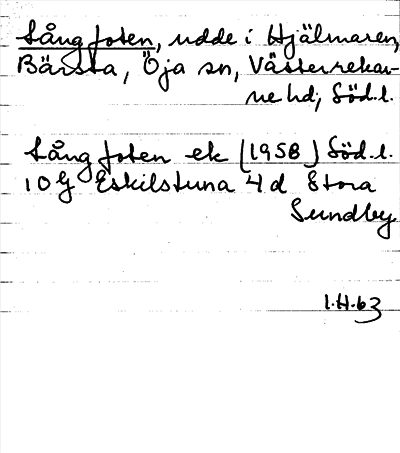 Långfoten, udde i Hjälmaren,
Bärsta, Öja sn, Västerrekar-
ne hd, Söd.l.
Långfoten ek (1958) Söd.l.
10G Eskilstuna 4d Stora
Sundby
1.H.63